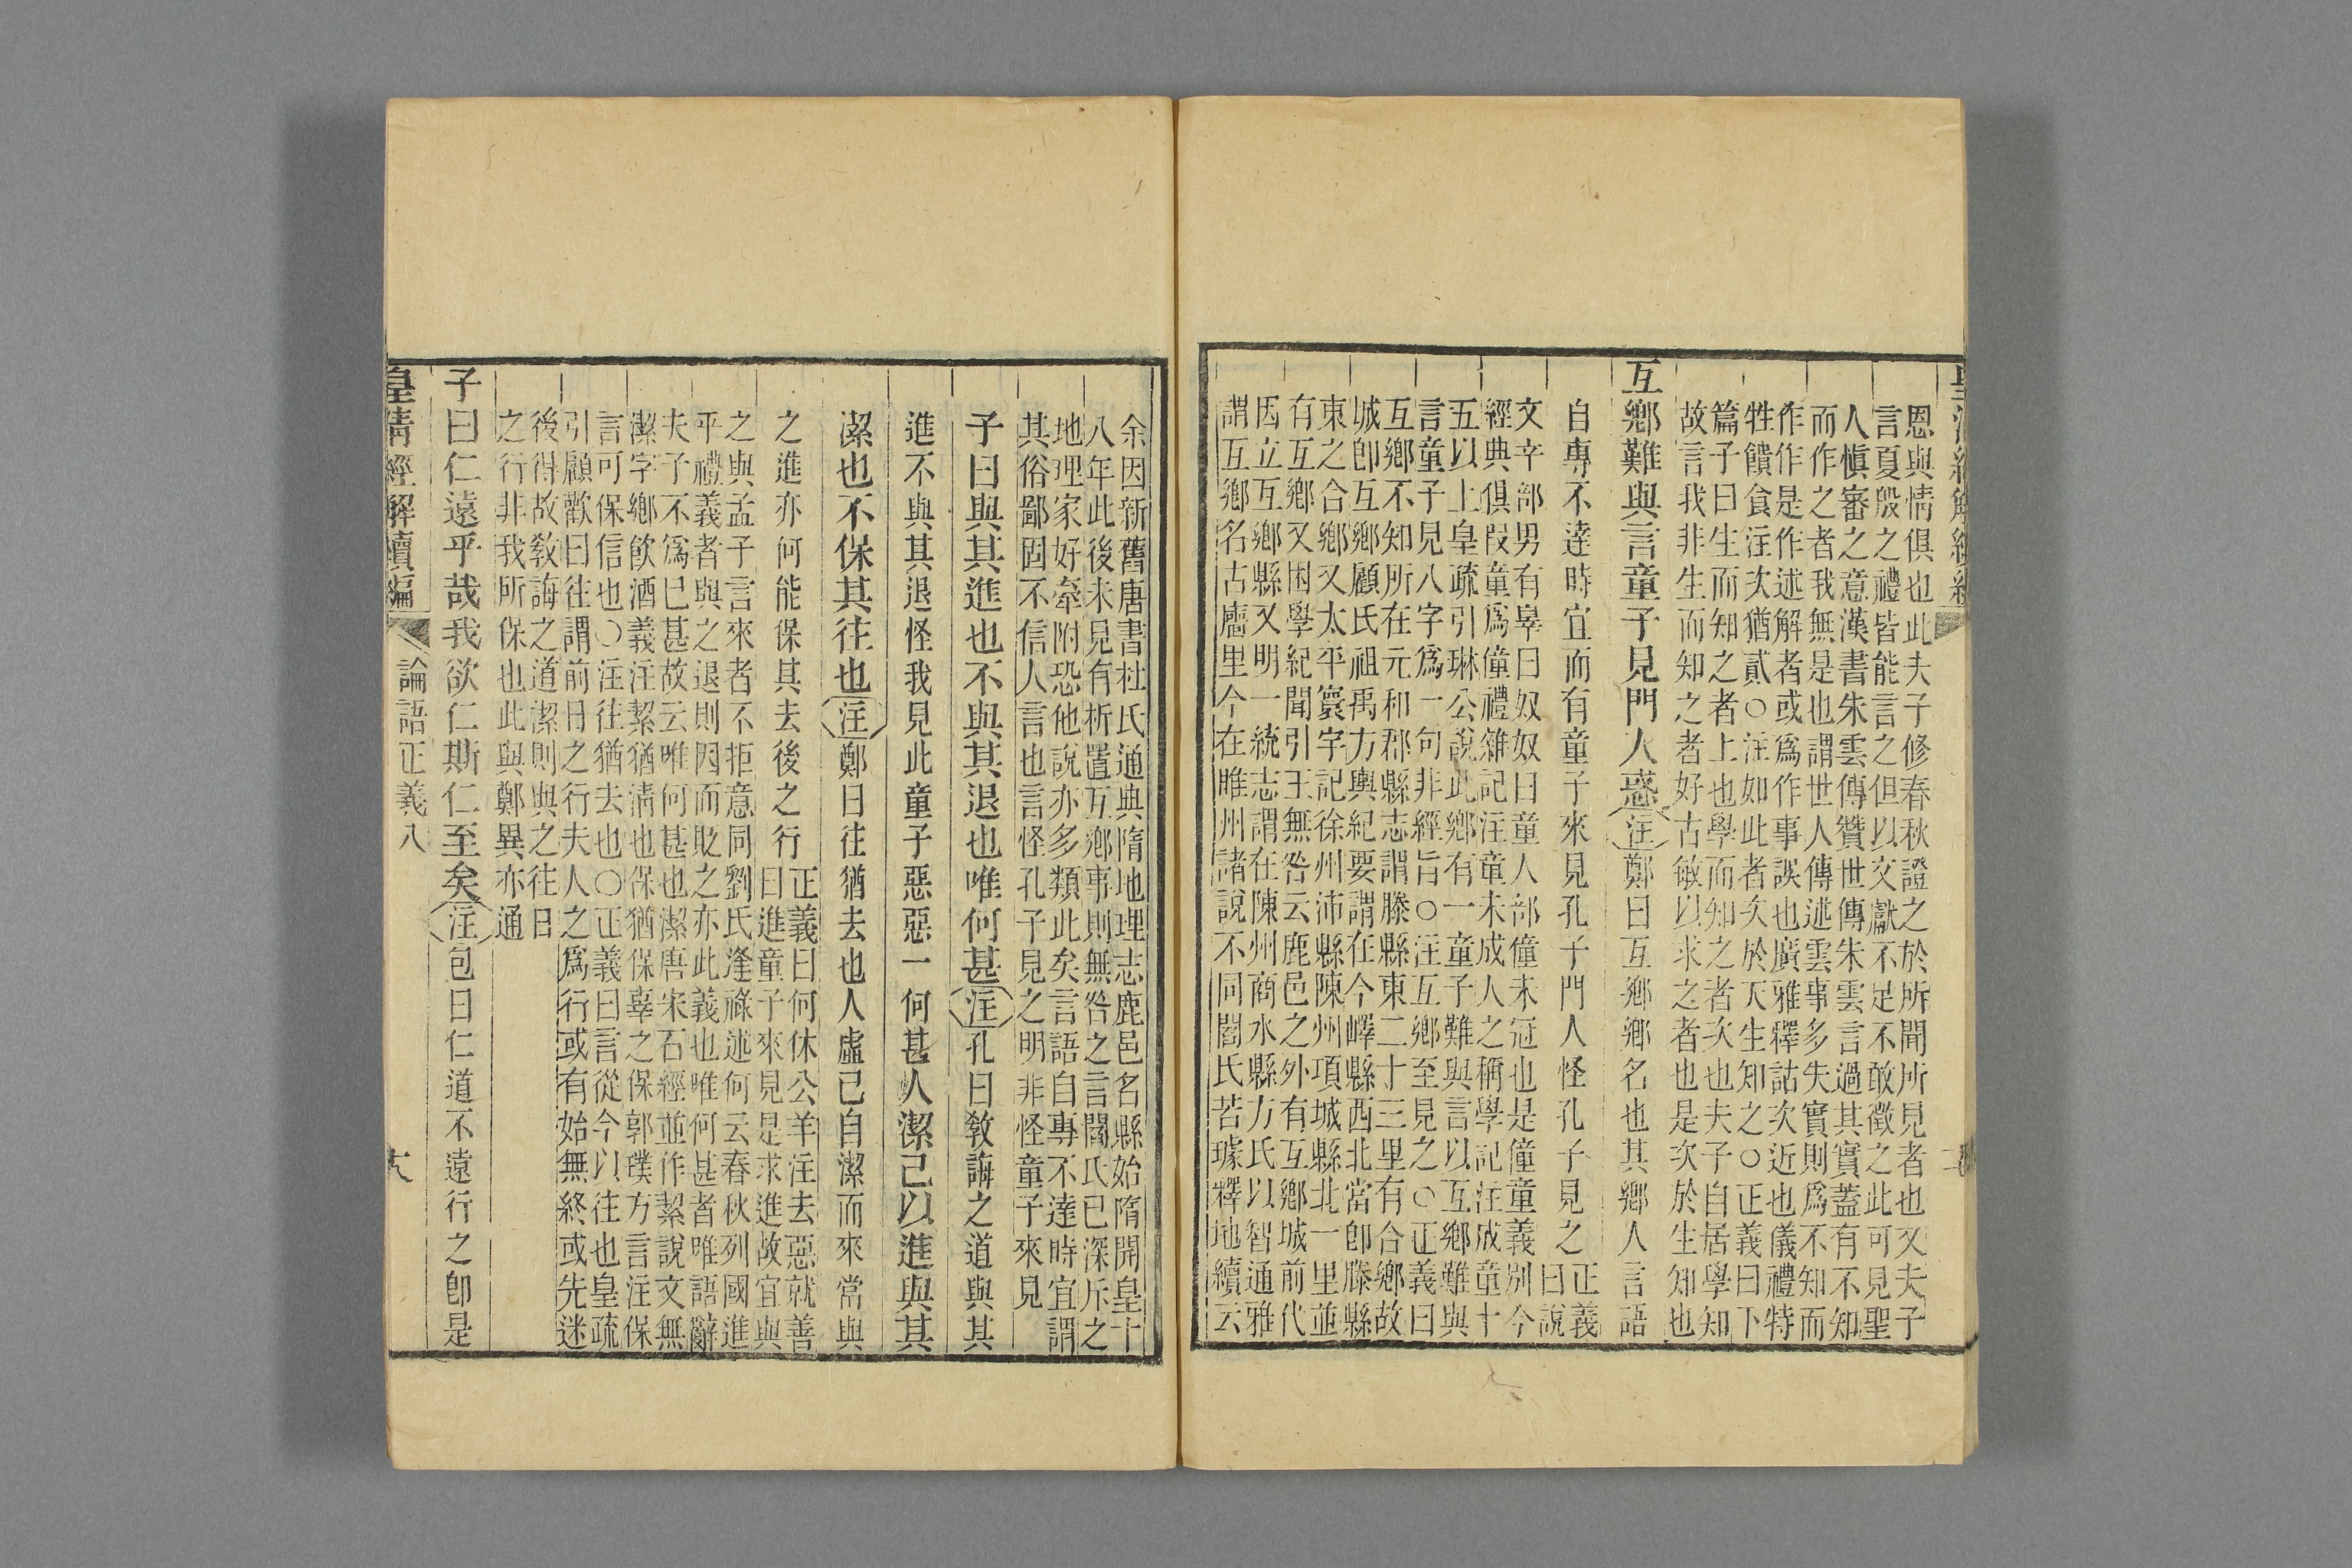 恩與情俱也此夫子修春秋證之於所聞所見者也又夫子
言夏殷之禮皆能言之但以文獻不足不敢徵之此可見聖
人愼審之意漢書朱雲傳贊世傳朱雲言過其實蓋有不知
而作之者我無是也謂世人傳述雲事多失實則爲不知而
作作是作述解者或爲作事誤也廣雅釋詁次近也儀禮特
牲饋食注次猶貳○注如此者次於天生知之○正義曰下
篇子曰生而知之者上也學而知之者次也夫子自居學知
故言我非生而知之者好古敏以求之者也是次於生知也
互鄉難與言童子見門人惑注鄭曰互鄉鄉名也其鄉人言語
自專不逹時宜而有童子來見孔子門人怪孔子見之正義
曰說
文䇂部男有辠曰奴奴曰童人部僮未冠也是僮童義別今
經典俱叚童爲僮禮雜記注童未成人之稱學記注成童十
五以上皇疏引琳公說此鄉有一童子難與言以互鄉難與
言童子見八字爲一句非經旨○注互鄉至見之○正義曰
互鄉不知所在元和郡縣志謂滕縣東二十三里有合鄉故
城卽互鄉顧氏祖禹方輿紀要謂在今嶧縣西北當卽滕縣
東之合鄉又太平寰宇記徐州沛縣陳州項城縣北一里並
有互鄉又困學紀聞引王無咎云鹿邑之外有互鄉城前代
因立互鄉縣又明一統志謂在陳州商水縣方氏以智通雅
謂互鄉名古廬里今在睢州諸說不同閻氏若璩釋地續云
余因新舊唐書杜氏通典隋地理志鹿邑名縣始隋開皇十
八年此後未見有析置互鄉事則無咎之言閻氏已深斥之
地理家好牽附恐他說亦多類此矣言語自專不逹時宜謂
其俗鄙固不信人言也言怪孔子見之明非怪童子來見
子曰與其進也不與其退也唯何甚注孔曰敎誨之道與其
進不與其退怪我見此童子惡惡一何甚人潔己以進與其
潔也不保其往也注鄭曰往猶去也人虛己自潔而來當與
之進亦何能保其去後之行正義曰何休公羊注去惡就善
曰進童子來見是求進故宜與
之與孟子言來者不拒意同劉氏逢祿述何云春秋列國進
乎禮義者與之退則因而貶之亦此義也唯何甚者唯語辭
夫子不爲已甚故云唯何甚也潔唐宋石經並作絜說文無
潔字鄉飮酒義注絜猶淸也保猶保辜之保郭璞方言注保
言可保信也○注往猶去也○正義曰言從今以往也皇疏
引顧歡曰往謂前日之行夫人之爲行或有始無終或先迷
後得故敎誨之道潔則與之往日
之行非我所保也此與鄭異亦通
子曰仁遠乎哉我欲仁斯仁至矣注包曰仁道不遠行之卽是
皇淸經解續編
論語正義八